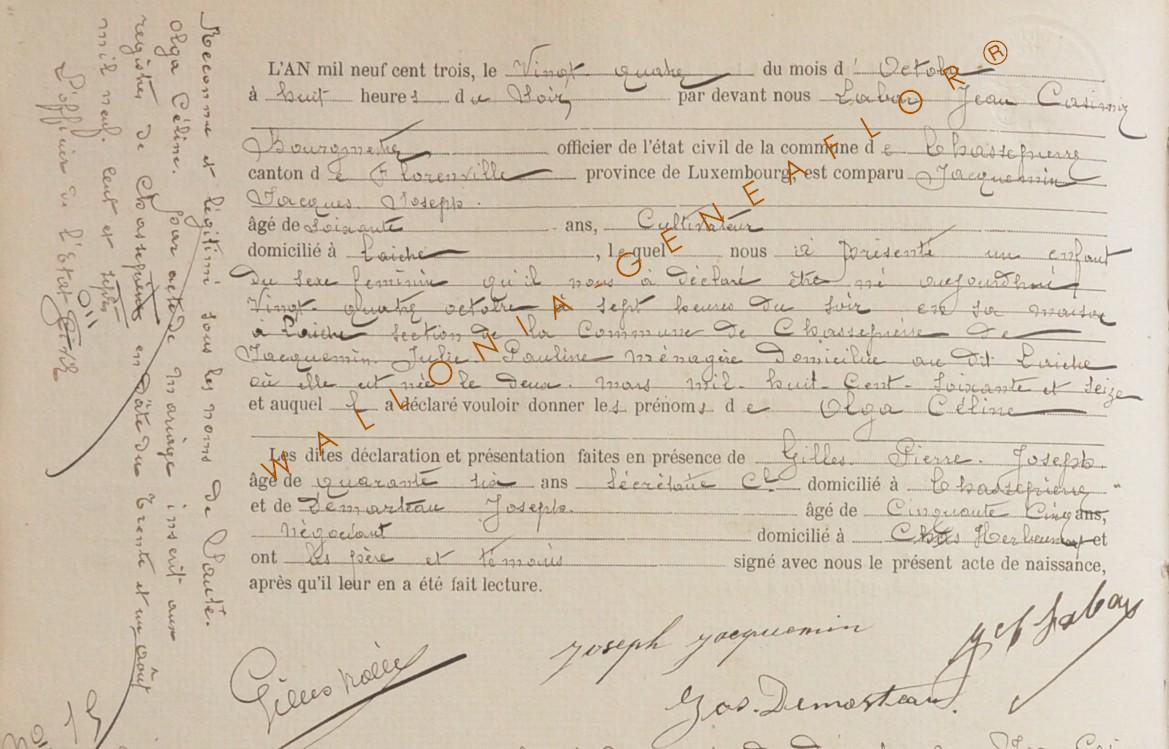 L'AN mil neuf cent trois, le Vingt quatre du mois d' Octobre
à huit heures du Soir par devant nous Labar Jean Casimir
Bourgmestre officier de l'état civil de la commune de Chassepierre
canton de Florenville province de Luxembourg, est comparu Jacquemin
Jacques Joseph.
âgé de Soixante ans, Cultivateur
domicilié à Laiche, lequel nous a présenté un enfant
du sexe féminin qu'il nous a déclaré être né aujourdhui
Vingt quatre octobre à sept heures du soir en sa maison
a Laiche section de la Commune de Chassepierre de
Jacquemin Julie Pauline ménagère domiciliée au dit Laiche
où elle est née le deux mars mil-huit-Cent-Soixante et Seize
et auquel il a déclaré vouloir donner les prénoms de Olga Céline
Les dites déclaration et présentation faites en présence de Gilles Pierre Joseph
âgé de quarante six ans Sécrétaire Cl domicilié à Chassepierre
et de Demarteau Joseph. âgé de Cinquante Cinq ans,
négociant domicilié à Herbeumont et
ont les père et témoins signé avec nous le présent acte de naissance,
après qu'il leur en a été fait lecture.
Joseph Jacquemin
Jos. Demarteau.
Reconnue et légitimé sous les noms de
Olga Céline. par acte de mariage inscrit aux
registres de Chassepierre en date du trente et un août
mil neuf cent et sept
L'officier de l'état civil
WALLONIA GENEAFLOR®